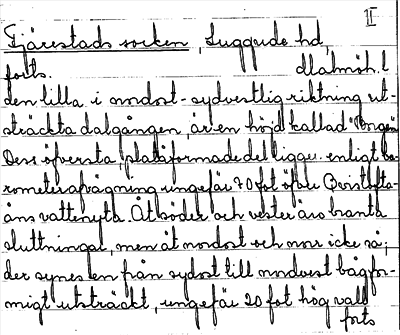 II
Fjärestads socken, Luggude hd,
forts. dlalmöh. l
den lilla, i nordost-sydvestlig riktning ut-
sträckta dalgången, är en höjd kallad "Borgen"
Dess öfversta, plattformade del ligger enligt ba-
rometerafvägning ungefär 70 fot öfver Qvistofta-
åns vattenyta. Åt söder och vester äro branta
sluttningar, men åt nordost och norr icke så;
der synes en från sydost till nordvest bågfor-
migt utsträckt, ungefär 20 fot hög vall
forts